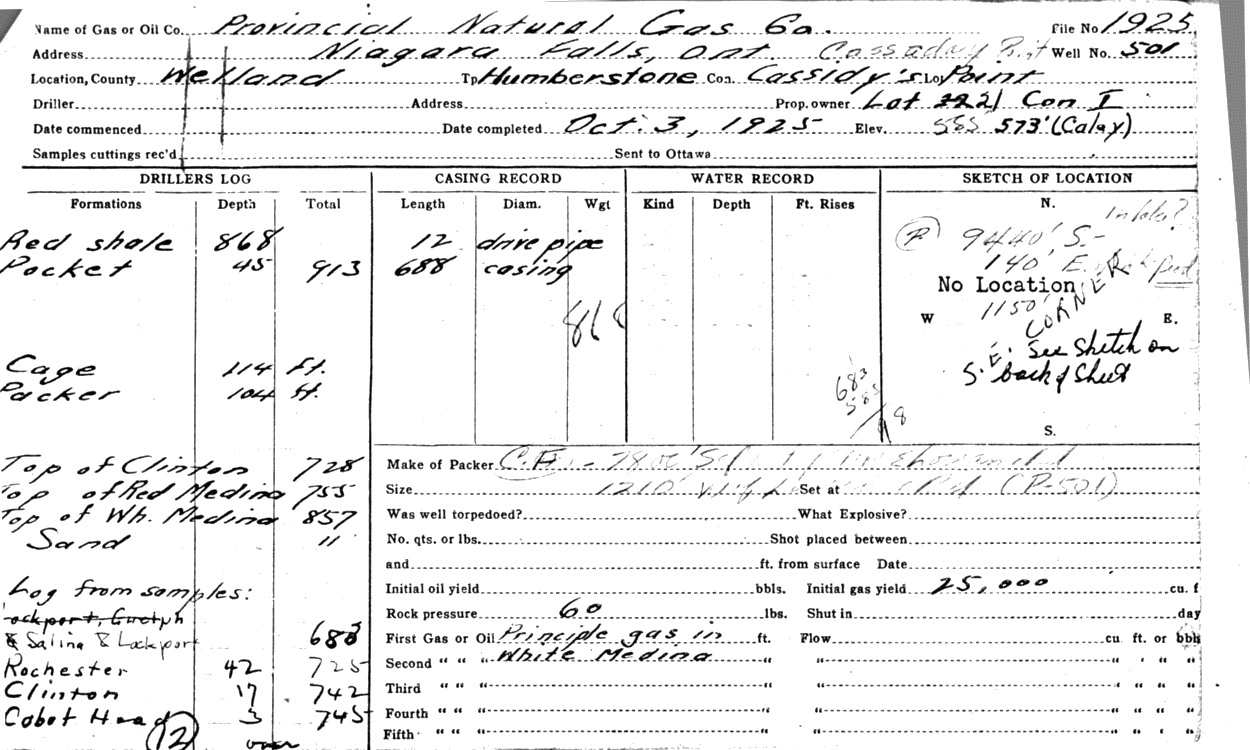 Name of Gas or Oil Co. Provincial Natural Gas Co. File No 1925
Address Niagara Falls, Ont Well No. 501
Location, County Welland Tp Humberstone Con. Cassidy's Lot Point
Driller Address Prop. owner Lot 21 Con I
Date commenced Date completed Oct. 3, 1925 Elev. 585 573' (Calay)
Samples cuttings rec'd Sent to Ottawa
DRILLERS LOG CASING RECORD WATER RECORD SKETCH OF LOCATION
Formations Depth Total Length Diam. Wgt Kind Depth Ft. Rises N.
Red shale 868 12 drive pipe 9440' S.
Pocket 45 913 688 casing 140' E.
No Location
868 1150'
W E.
CORNER
S.E. See Sketch on
back of Sheet
Cage 114 ft.
Packer 104 ft.
683
585
98
S.
Top of Clinton 728
Top of Red Medina 755
Top of Wh. Medina 857
Sand "
Make of Packer
Size 1210' Set at (P-501)
Was well torpedoed? What Explosive?
No. qts. or lbs. Shot placed between
and ft. from surface Date
Log from samples:
Initial oil yield bbls. Initial gas yield 25,000 cu. f
Lockport, Guelph
Rock pressure 60 lbs. Shut in day
& Salina & Lockport 683
First Gas or Oil Principle gas in ft. Flow cu ft. or bbls
Rochester 42 725
Second " " " White Medina " " " " "
Clinton 17 742
Third " " " " " " " "
Cabot Head 3 745
Fourth " " " " " " " "
(12) over
Fifth " " " " " " " "